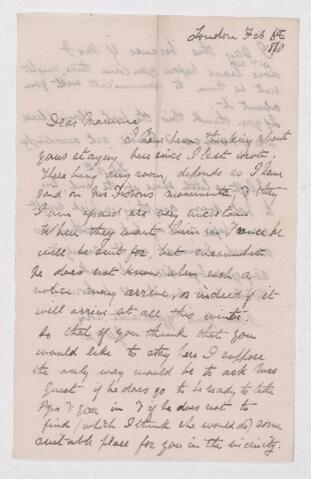 London Feb 8th
1878
Dear Marianna
I have been thinking about
your staying here since I last wrote.
There being any room, depends as I have
said on Mr movements & they
I am afraid are very uncertain
When they want him in France he
will be sent for, but meanwhile
he does not know when such a
notice may arrive, or indeed if it
will arrive at all this winter.
So that if you think that you
would like to stay here I suppose
the only way would be to ask Mrs
Guest if he does go to be ready to take
Papa & you in & if he does not to
find (which I think she would do) some
suitable place for you in the vicinity.